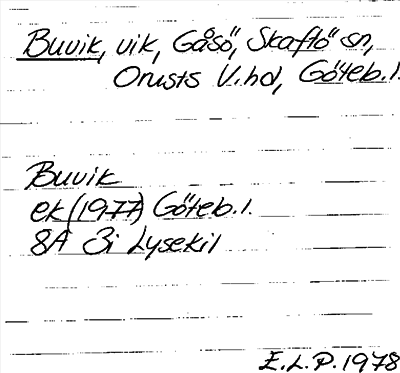 Buvik, vik, Gåsö, Skaftö sn,
Orusts V.hd, Göteb.l.
Buvik
ek (1977) Göteb.l.
8A 3i Lysekil
E.L.P. 1978